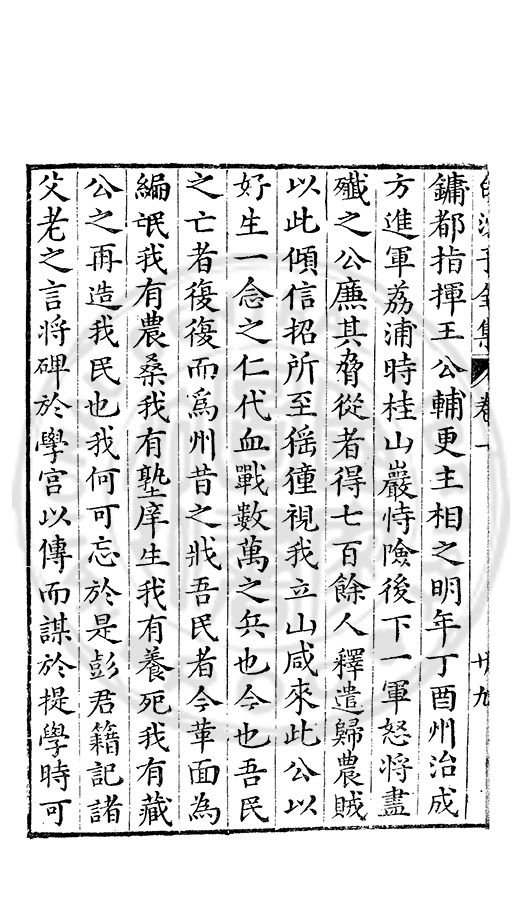 全集 卷十
鏞都指揮王公輔更主相之明年丁酉州治成
方進軍荔浦時桂山巖恃險後下一軍怒將盡
殱之公廉其脅從者得七百餘人釋遣歸農賊
以此傾信招所至猺獞視我立山咸來此公以
好生一念之仁代血戰數萬之兵也今也吾民
之亡者復復而爲州昔之戕吾民者今革面為
編氓我有農桑我有塾庠生我有養死我有藏
公之再造我民也我何可忘於是彭君籍記諸
父老之言將碑於學宮以傳而謀於提學時可